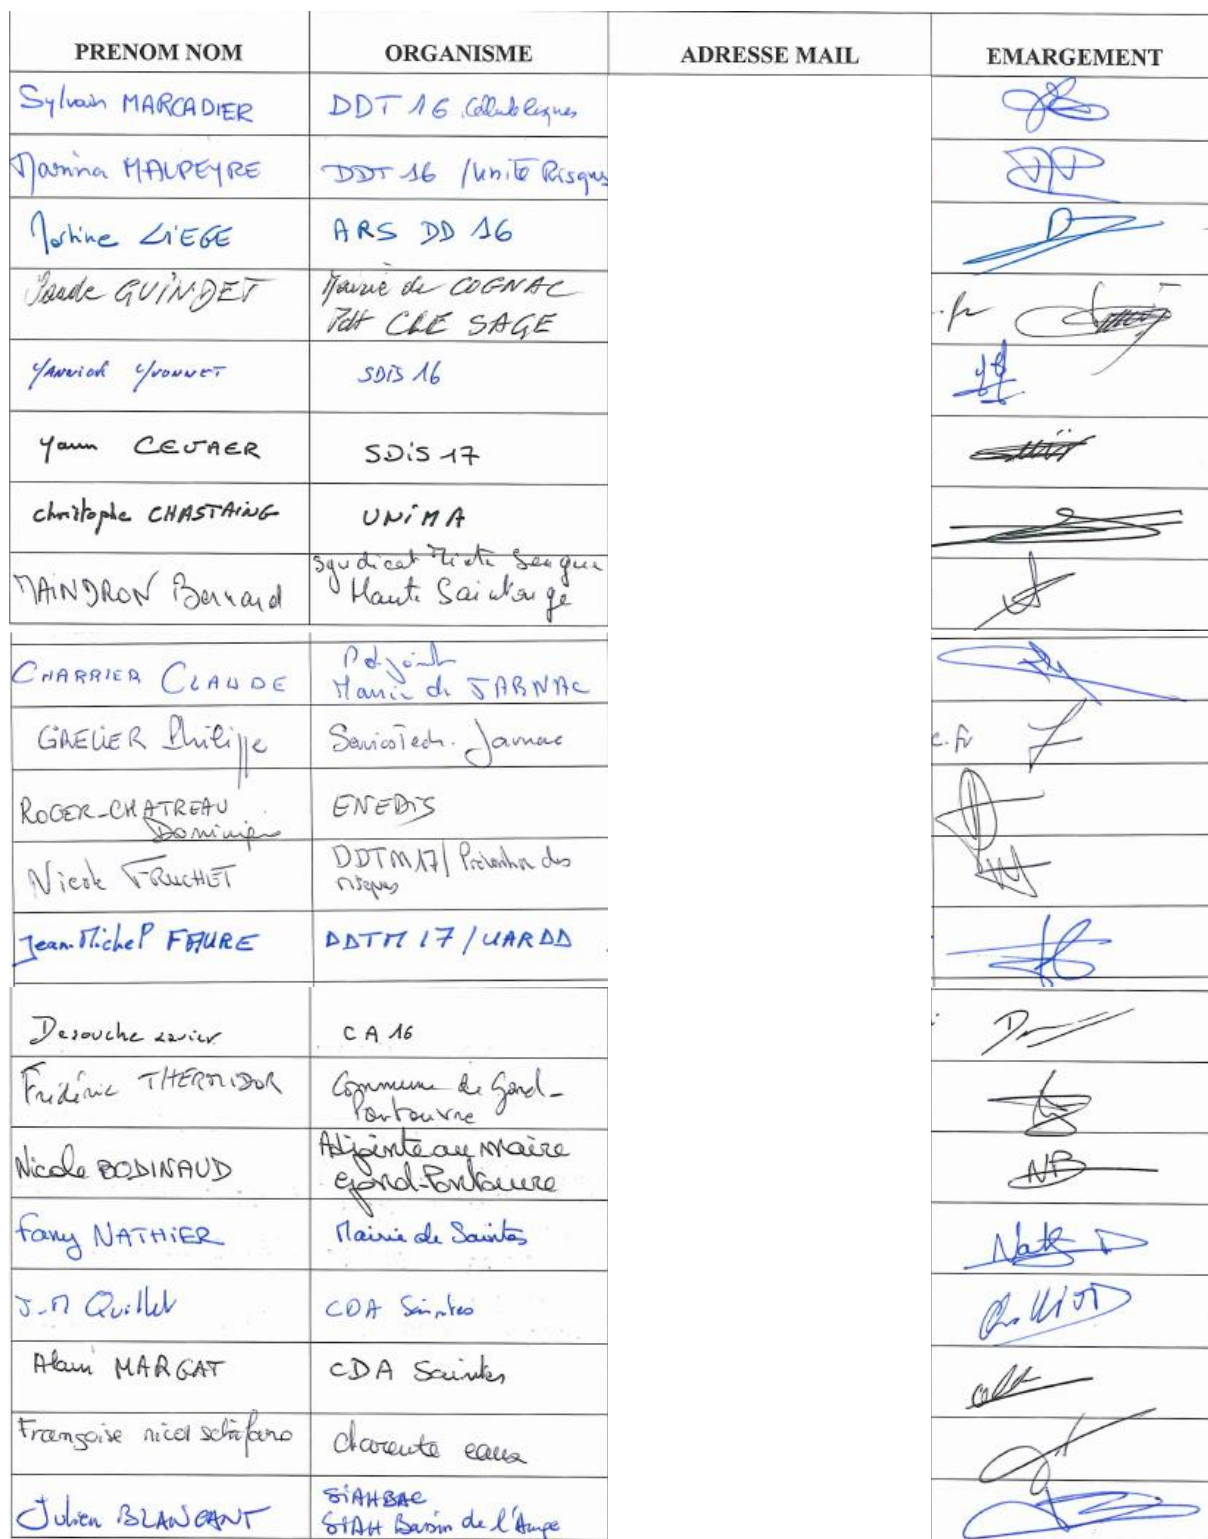 PRENOM NOM ORGANISME ADRESSE MAIL EMARGEMENT
Sylvain MARCADIER DDT 16 Cellule Risques
Marina MAUPEYRE DDT 16 /Unité Risques
Martine LIEGE ARS DD 16
GUINDET Mairie de COGNAC
Pdt CLE SAGE
.fr
Yannick YVONNET SDIS 16
Yann CEVAER SDiS 17
Christophe CHASTAING UNiMA
MAINDRON Bernard Syndicat Mixte Seugne
Haute Saintonge
CHARRIER CLAUDE Adjoint
Mairie de JARNAC
GRELIER Philippe Services Tech. Jarnac
c.fr
ROGER-CHATREAU ENEDIS
Dominique
Nicole FRUCHET DDTM17/ Prévention des
risques
Jean-Michel FAURE DDTM 17 / UARDD
Desouche xavier CA 16
Frédéric THERMIDOR Commune de Gond-
Pontouvre
Nicole BODINAUD Adjointe au maire
Gond-Pontouvre
NB
Fany NATHIER Mairie de Saintes
J-M Quillet CDA Saintes
Alain MARGAT CDA Saintes
Françoise nicol schifano charente eaux
Julien BLANCANT SiAHBAC
SIAH Bassin de l'Auge